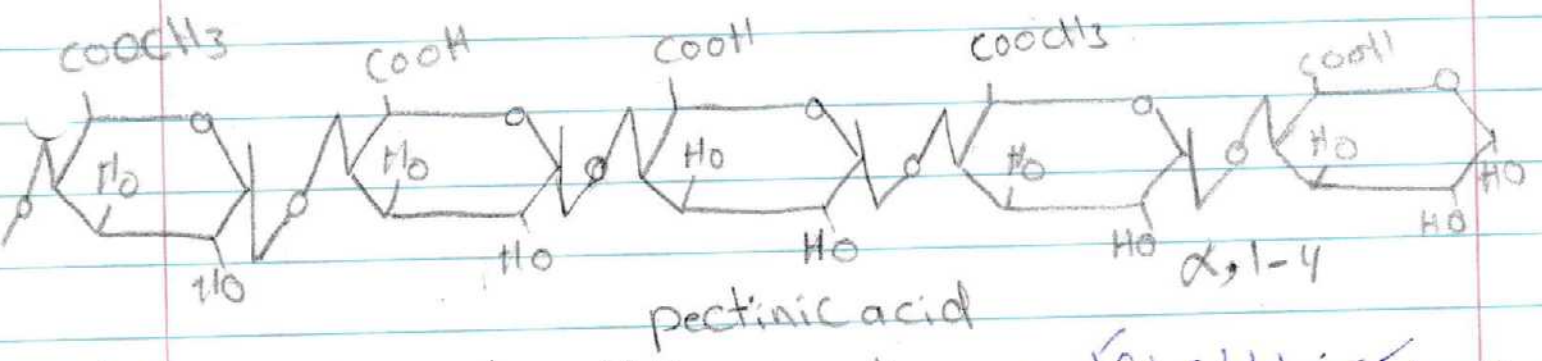 COOCH3 COOH COOH COOCH3 COOH
O O O O O
HO HO HO HO HO
O O O O O HO
HO HO HO HO HO
α,1-4
pectinic acid